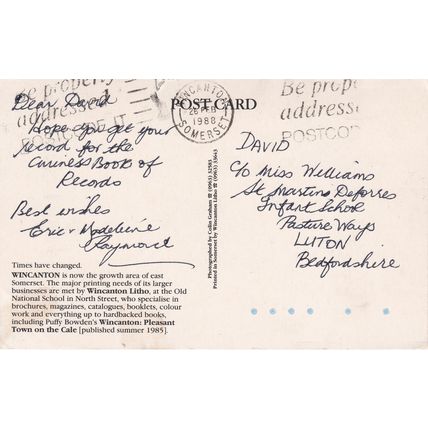 Be properly
addressed
POSTCODE IT
WINCANTON
26 FEB
1988
SOMERSET
Be prope
addresse
POSTCOD
POST CARD
Dear David
Hope you get your
record for the
Guiness Book of
Records
Best wishes
Eric + Madeleine
Raymond
Times have changed.
WINCANTON is now the growth area of east
Somerset. The major printing needs of its larger
businesses are met by Wincanton Litho, at the Old
National School in North Street, who specialise in
brochures, magazines, catalogues, booklets, colour
work and everything up to hardbacked books,
including Puffy Bowden's Wincanton: Pleasant
Town on the Cale [published summer 1985].
Photographed by Colin Graham ☎ (0963) 32583
Printed in Somerset by Wincanton Litho ☎ (0963) 33643
DAVID
C/o Miss Williams
St Martins Deforres
Infant School
Pasture Ways
LUTON
Bedfordshire